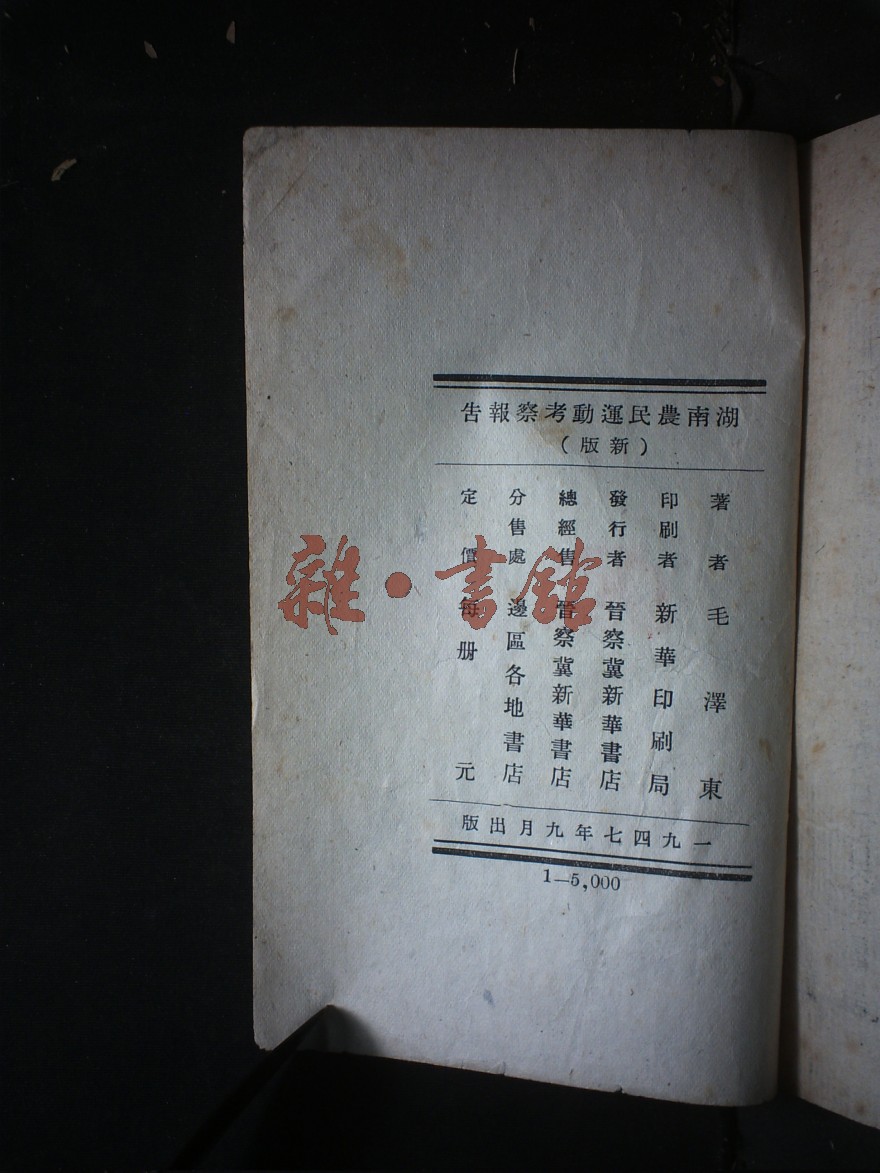 湖南農民運動考察報告
（新版）
著者 毛澤東
印刷者 新華印刷局
發行者 晉察冀新華書店
總經售 晉察冀新華書店
分售處 邊區各地書店
定價每册 元
一九四七年九月出版
1—5,000
雜·書館